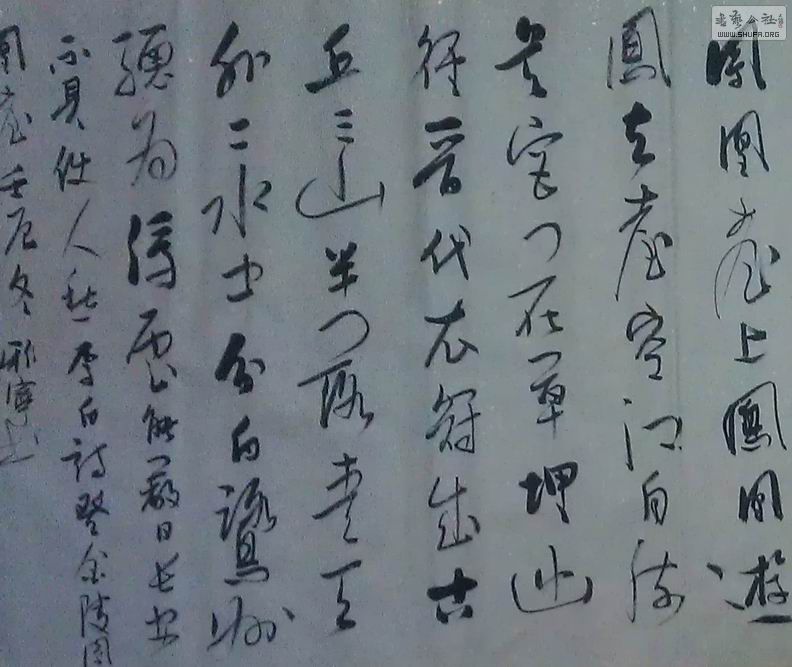 鳳凰臺上鳳凰遊
鳳去臺空江自流
吴宫花草埋幽
徑晉代衣冠成古
丘三山半落青天
外二水中分白鷺洲
總為浮雲能蔽日長安
不見使人愁李白詩登金陵鳳
凰臺壬辰冬
书藝公社
WWW.SHUFA.ORG